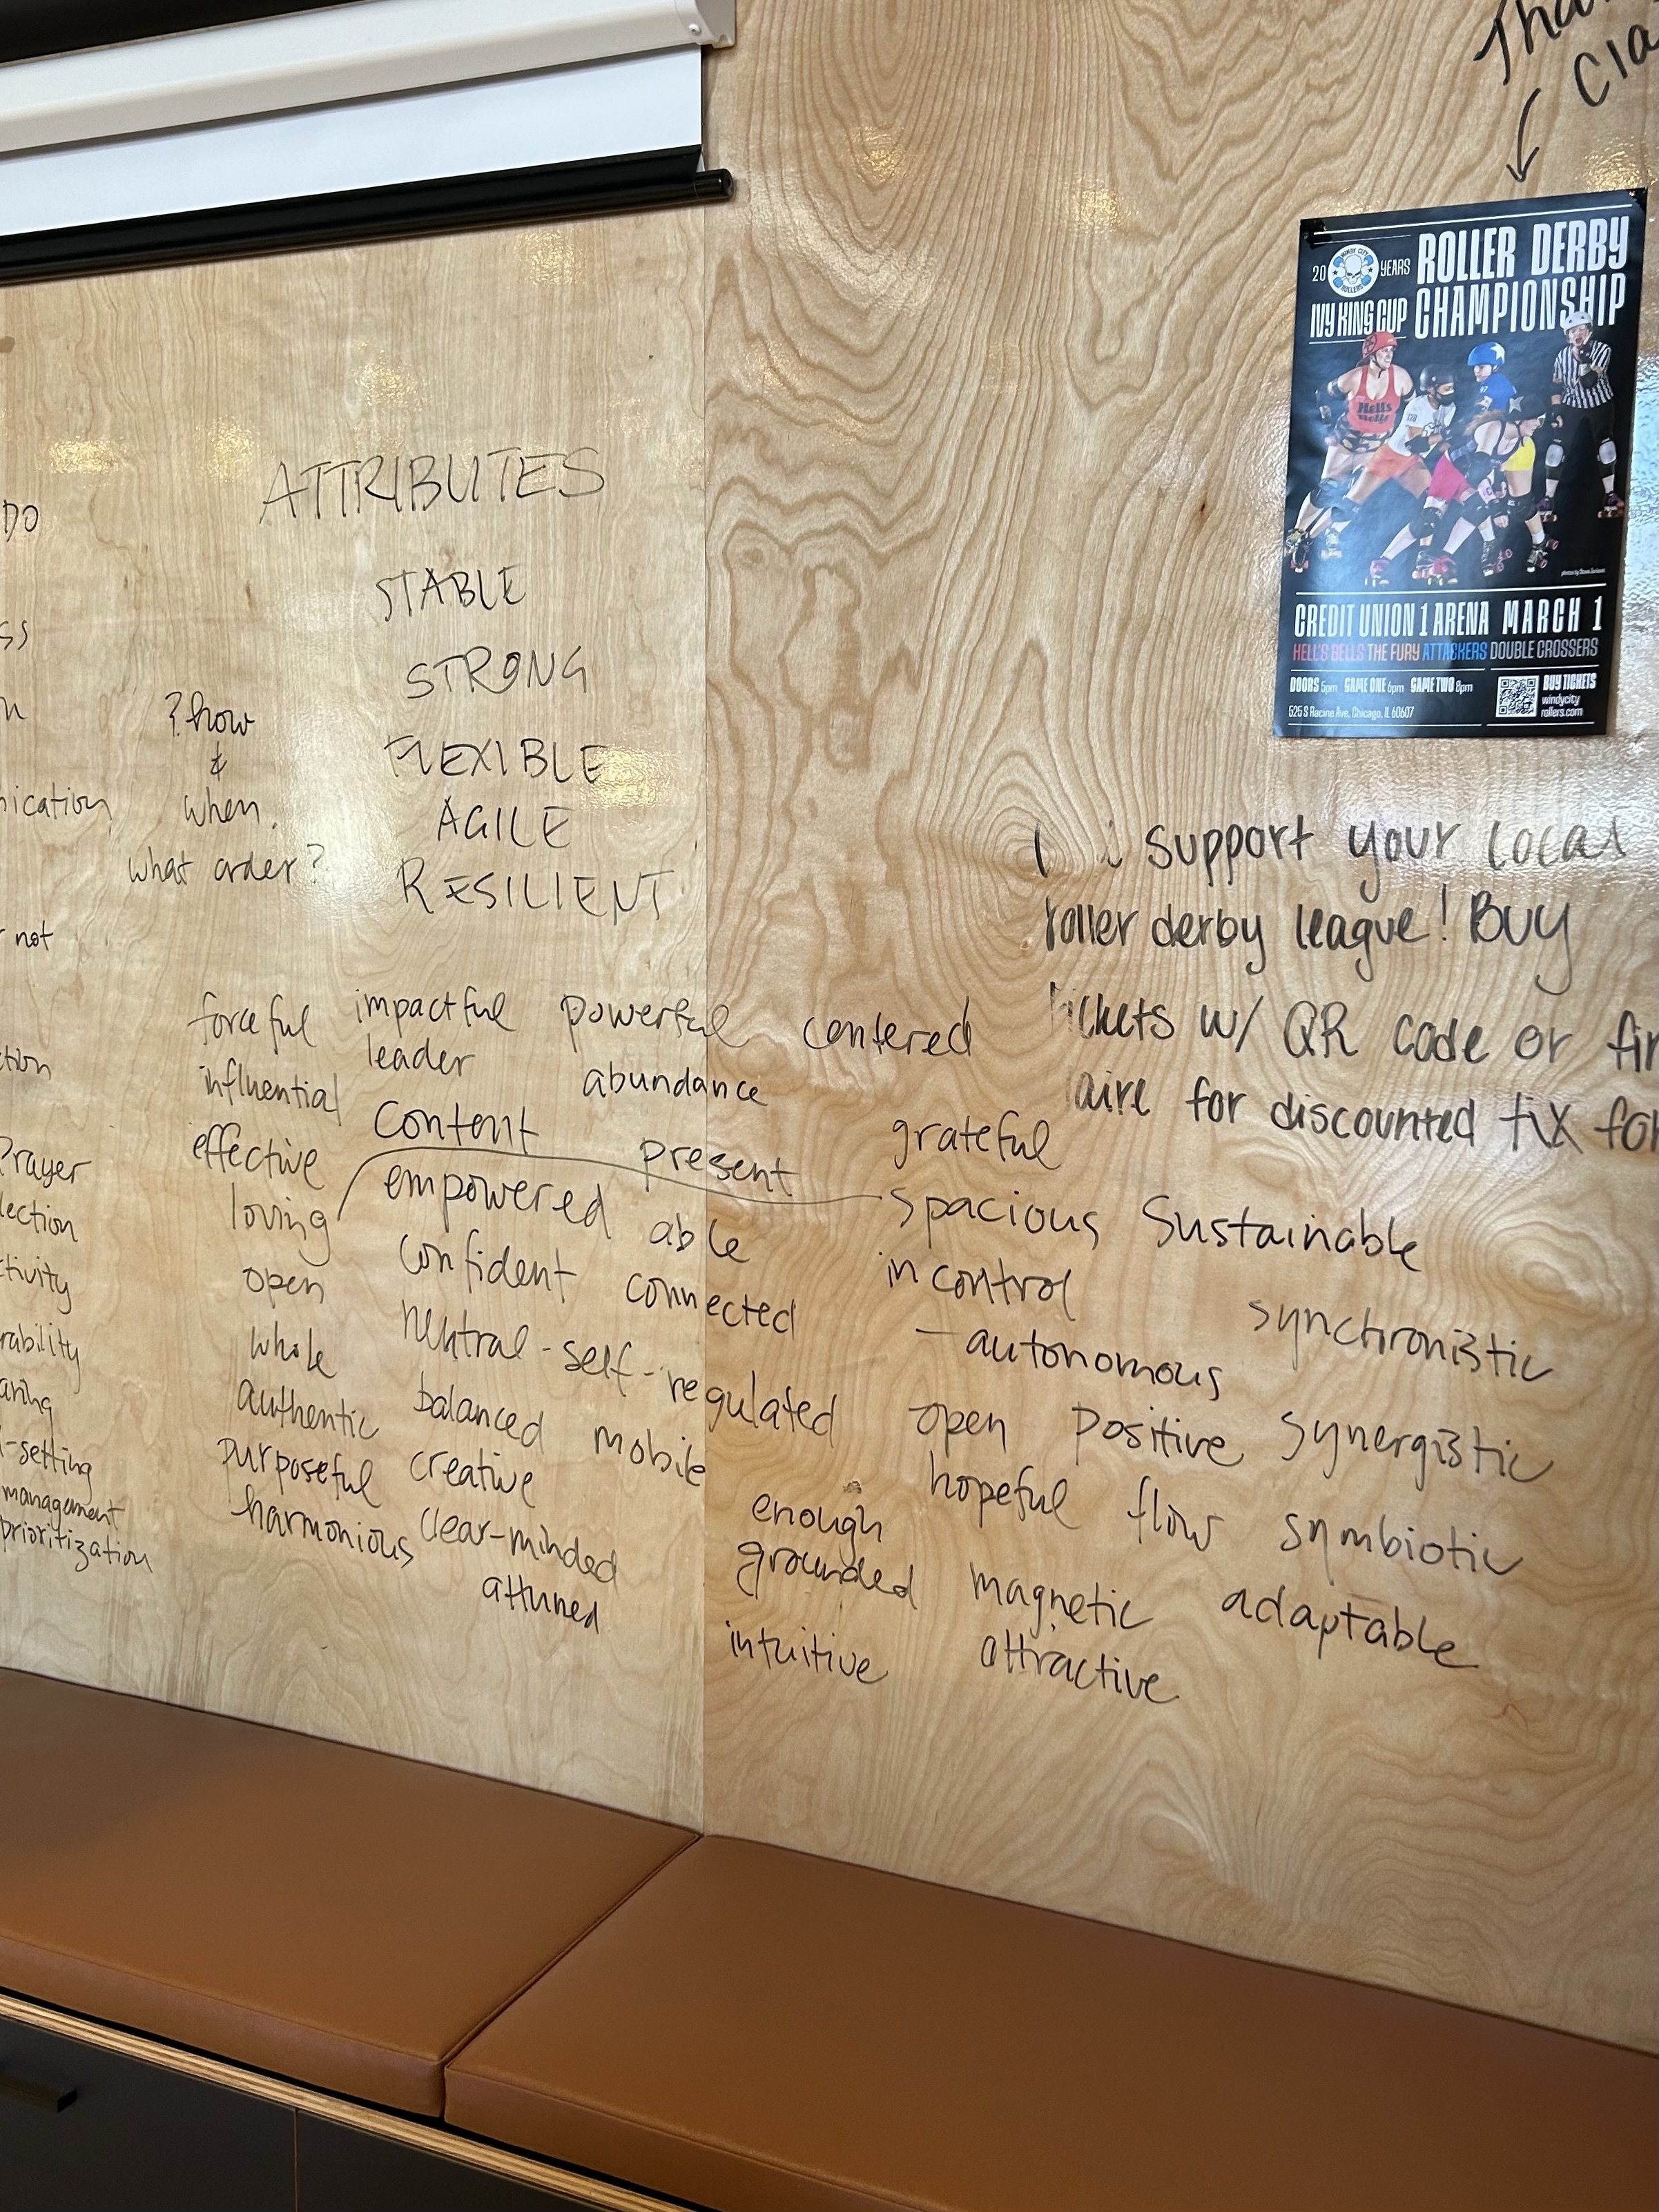 DO
ATTRIBUTES
STABLE
STRONG
FLEXIBLE
AGILE
RESILIENT
? how
&
when.
what order?
not
Prayer
-setting
management
prioritization
forceful impactful powerful centered
influential leader abundance
effective content present grateful
loving empowered able spacious sustainable
open confident connected in control synchronistic
whole neutral - self-regulated - autonomous
authentic balanced mobile open positive synergistic
purposeful creative enough hopeful flow symbiotic
harmonious clear-minded grounded magnetic adaptable
attuned intuitive attractive
20 YEARS
WINDY CITY ROLLERS
ROLLER DERBY
IVY KING CUP CHAMPIONSHIP
Hells
CREDIT UNION 1 ARENA MARCH 1
HELL'S BELLS THE FURY ATTACKERS DOUBLE CROSSERS
DOORS 5pm GAME ONE 6pm GAME TWO 8pm
525 S Racine Ave, Chicago, IL 60607
BUY TICKETS
windycity
rollers.com
i support your local
roller derby league! BUY
tickets w/ QR code or
for discounted tix for